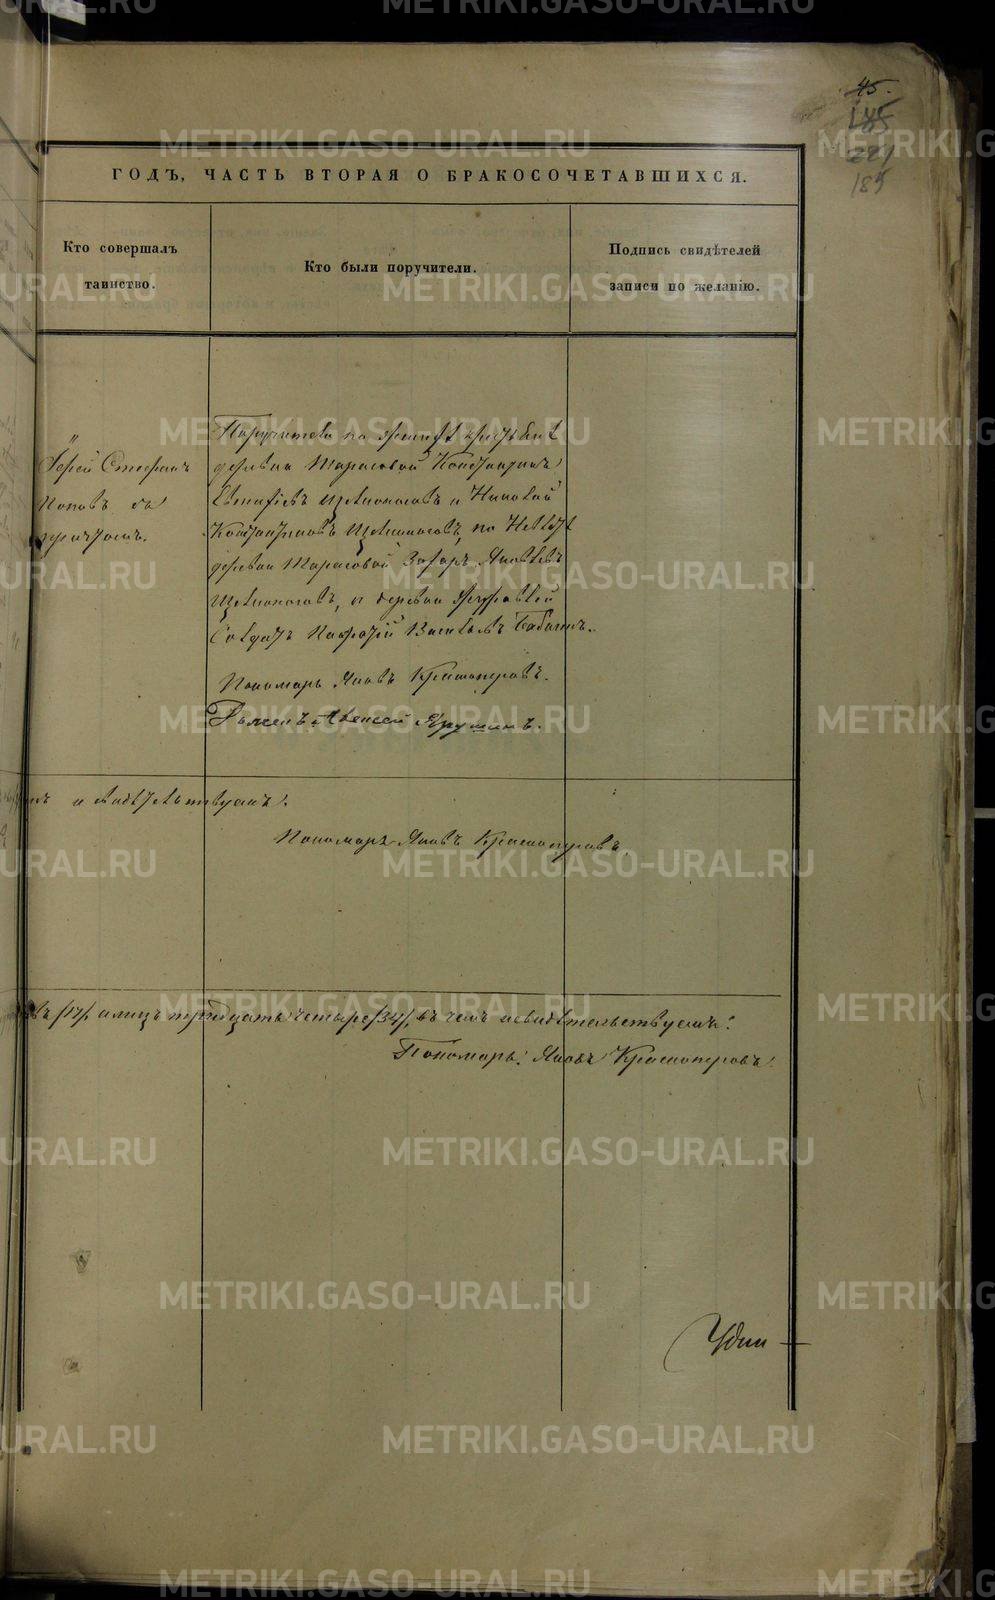 45.
145
221
185
ГОДЪ, ЧАСТЬ ВТОРАЯ О БРАКОСОЧЕТАВШИХСЯ.
Кто совершалъ
таинство.
Кто были поручители.
Подпись свидѣтелей
записи по желанію.
Іерей Стефанъ
Поповъ съ
причтомъ.
Поручители по женихѣ крестьяне
деревни Тарасовой Константинъ
Евтифѣевъ Щелконоговъ и Николай
Константиновъ Щелконоговъ, по Невѣстѣ
деревни Тарасовой Захаръ Яковлевъ
Щелконоговъ, и деревни
Солдатъ Васильевъ Бабинъ.
Пономарь Яковъ Красноперовъ.
Алексей Ярушинъ.
и свидѣтельствуемъ.
Пономарь Яковъ Красноперовъ.
/17/, а лицъ тридцать четыре /34/, въ чемъ и свидѣтельствуемъ:
Пономарь: Яковъ Красноперовъ
METRIKI.GASO-URAL.RU